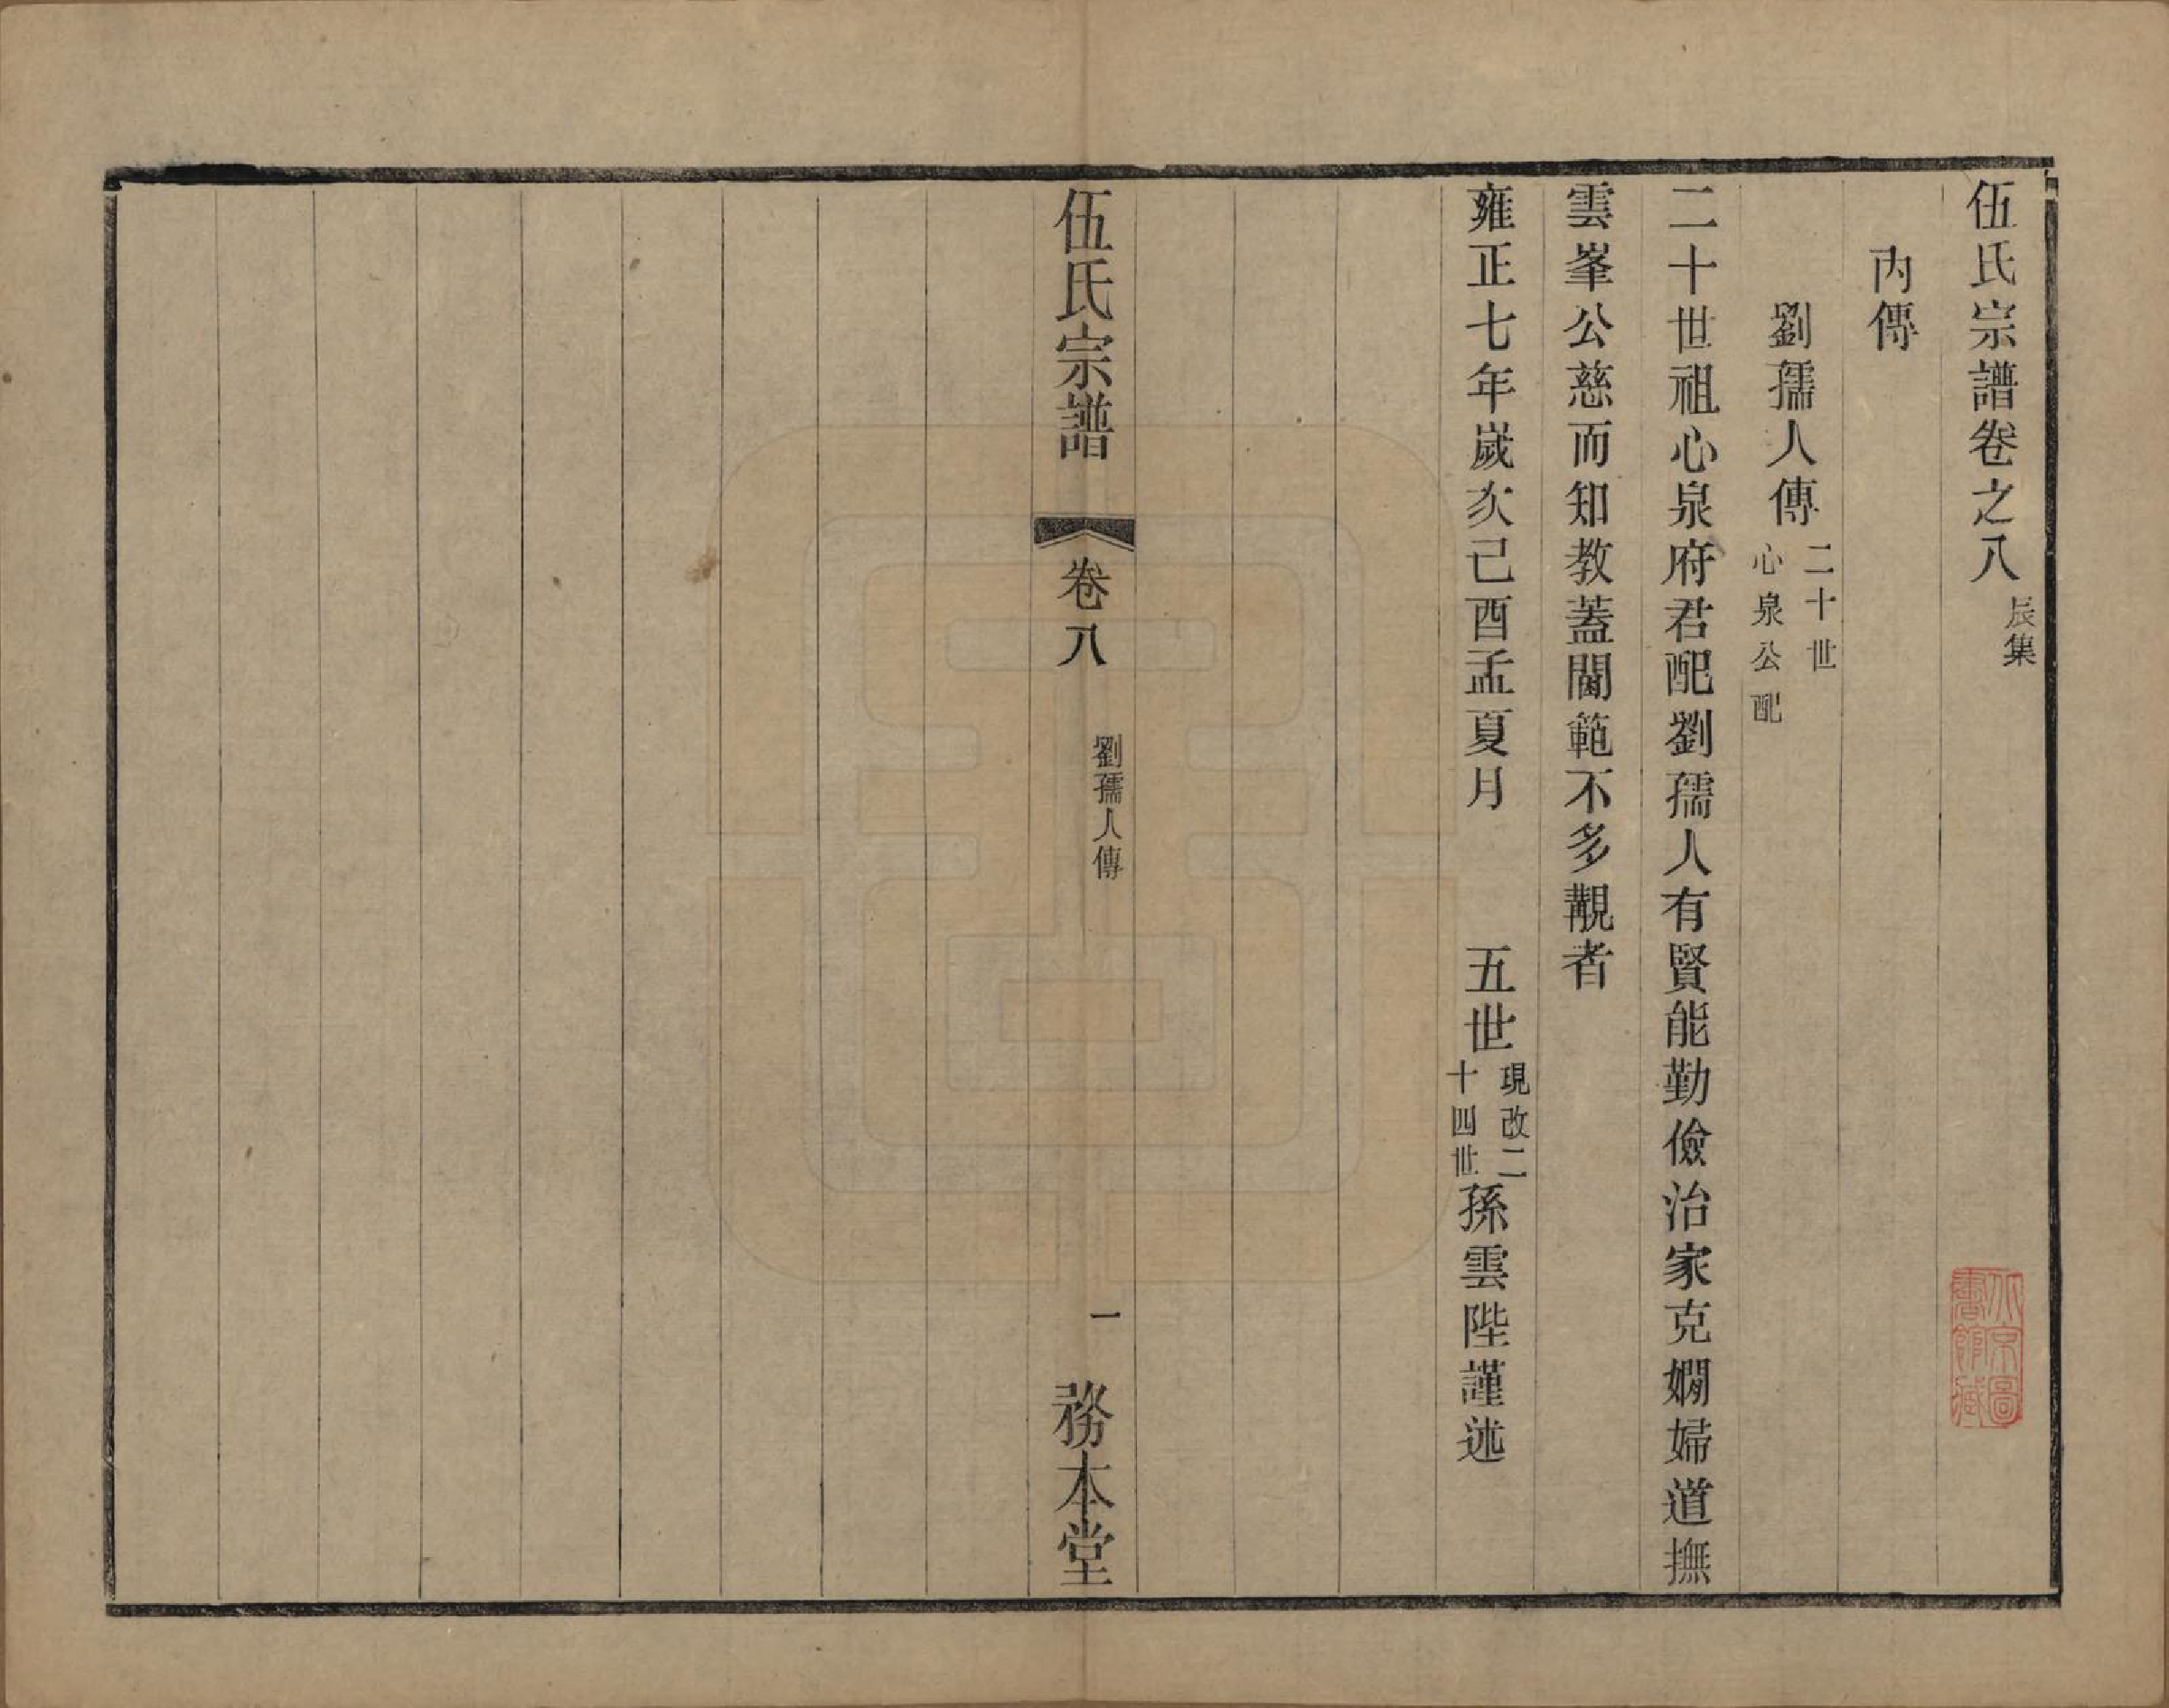 伍氏宗譜卷之八 辰集
內傳
劉孺人傳 二十世心泉公配
二十世祖心泉府君配劉孺人有賢能勤儉治家克嫻婦道撫
雲峯公慈而知教蓋閫範不多覯者
雍正七年歲次己酉孟夏月 五世 現改二十四世 孫雲陛謹述
伍氏宗譜 卷八 劉孺人傳 一 務本堂
北京圖書館藏